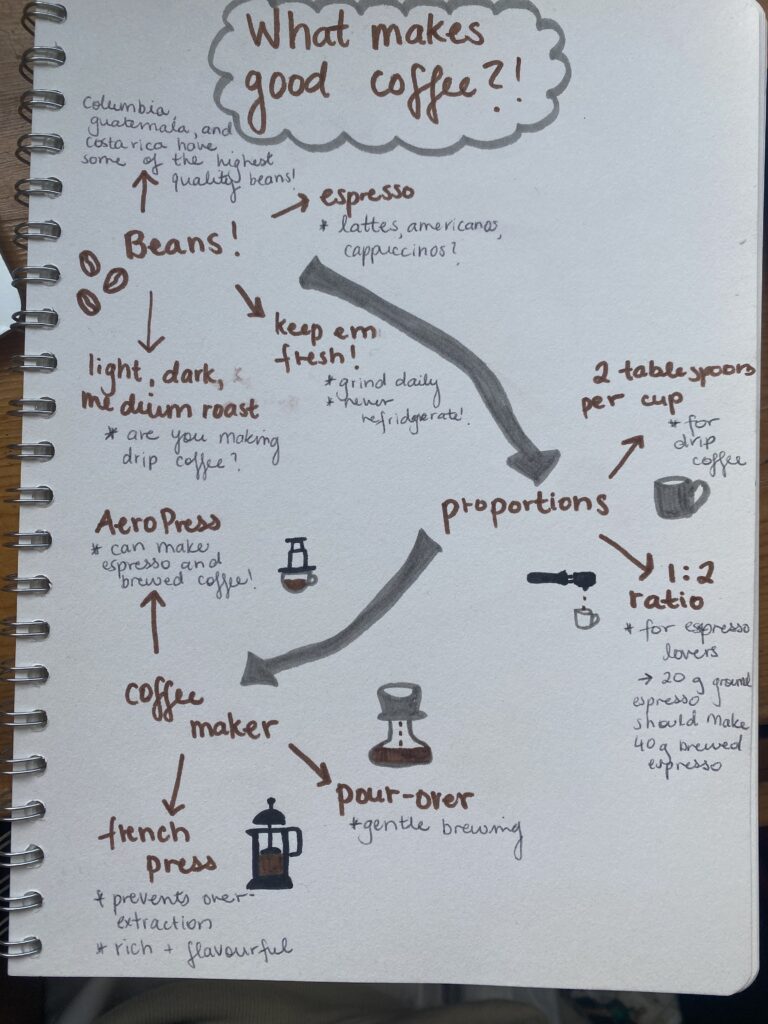 What makes
good coffee?!
Columbia,
guatemala, and
Costa rica have
some of the highest
quality beans!
Beans!
espresso
* lattes, americanos,
cappuccinos?
keep em
fresh!
* grind daily
* never
refridgerate!
light, dark,
medium roast
* are you making
drip coffee?
proportions
2 tablespoons
per cup
* for
drip
coffee
1:2
ratio
* for espresso
lovers
→ 20 g ground
espresso
should make
40g brewed
espresso
coffee
maker
AeroPress
* can make
espresso and
brewed coffee!
pour-over
* gentle brewing
french
press
* prevents over-
extraction
* rich + flavourful